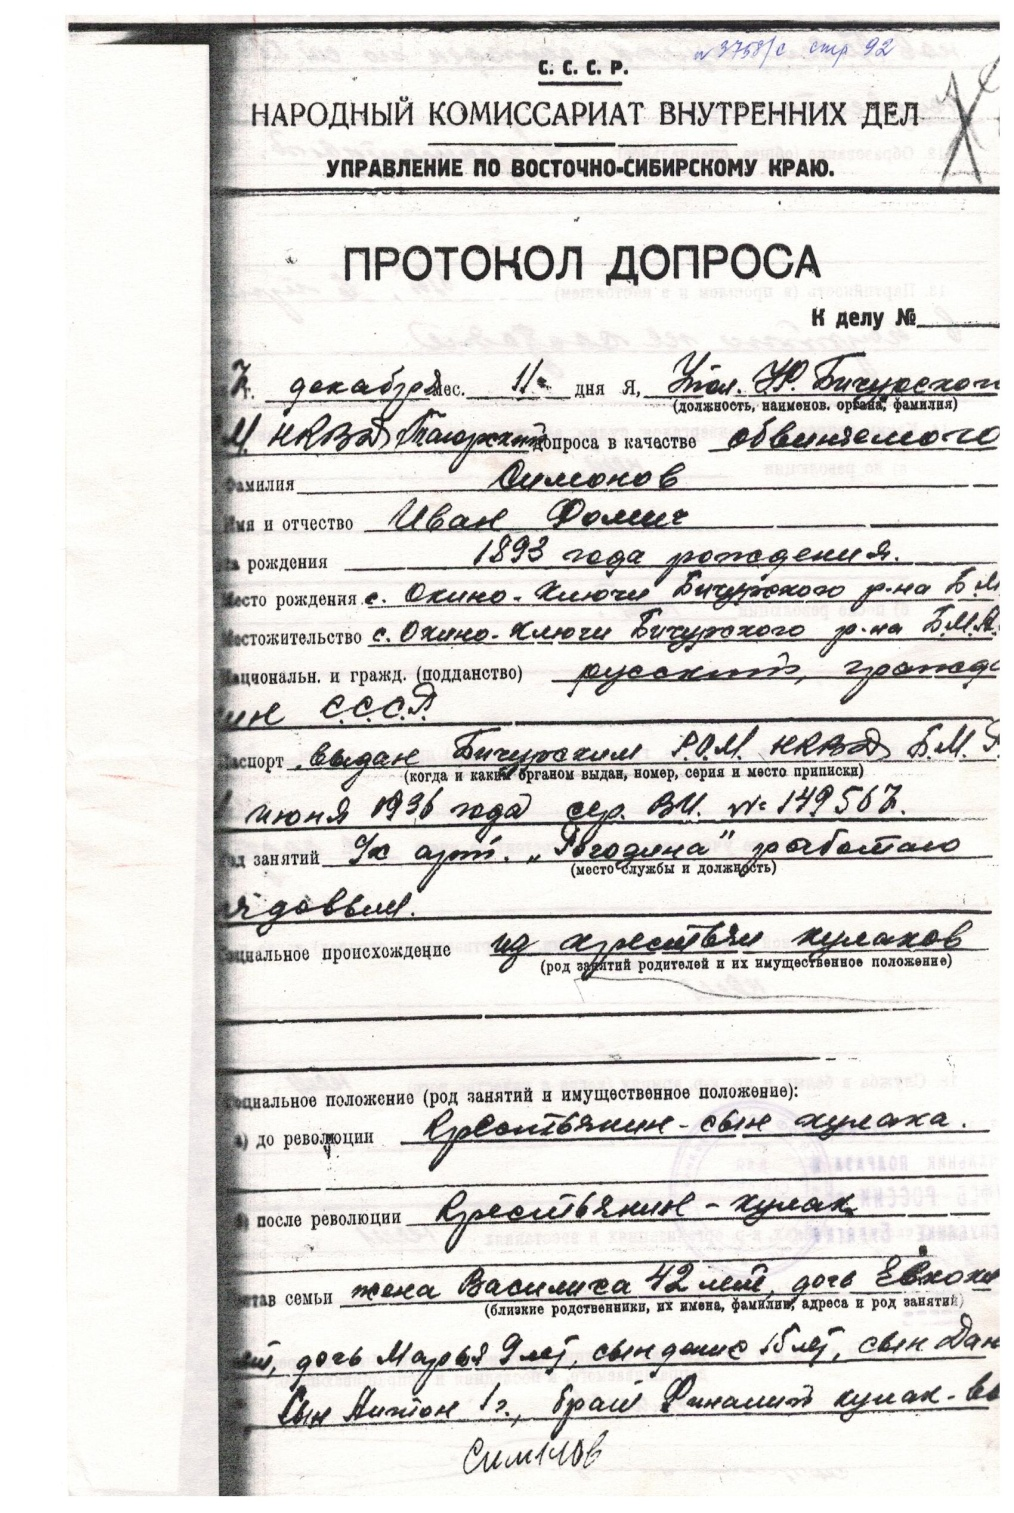 № 3758/с стр 92
С. С. С. Р.
НАРОДНЫЙ КОМИССАРИАТ ВНУТРЕННИХ ДЕЛ
УПРАВЛЕНИЕ ПО ВОСТОЧНО-СИБИРСКОМУ КРАЮ.
ПРОТОКОЛ ДОПРОСА
К делу №
г. декабря мес. 11 дня Я, Бичурского
(должность, наименов. органа, фамилия)
НКВД допроса в качестве обвиняемого
Фамилия Симонов
Имя и отчество Иван Фомич
рождения 1893 года рождения.
Место рождения с. Окино-Ключи Бичурского р-на Б.М.
Местожительство с. Окино-Ключи Бичурского р-на Б.М.А.
Национальн. и гражд. (подданство) русский, гражда
ин С.С.С.Р.
Паспорт выдан Бичурским Р.О.М. НКВД Б.М.
(когда и каким органом выдан, номер, серия и место приписки)
июня 1936 года сер. ВИ. № 149567.
Род занятий арт. работаю
(место службы и должность)
ядовым.
Социальное происхождение из крестьян кулаков
(род занятий родителей и их имущественное положение)
Социальное положение (род занятий и имущественное положение):
а) до революции Крестьянин-сын кулака.
б) после революции Крестьянин-кулак
став семьи жена Василиса 42 лет, дочь Евдоки
(близкие родственники, их имена, фамилии, адреса и род занятий)
лет, дочь Марья 9 лет, сын денис 15 лет, сын Дан
Сын Антон 1 г., брат кулак-вы
Симонов